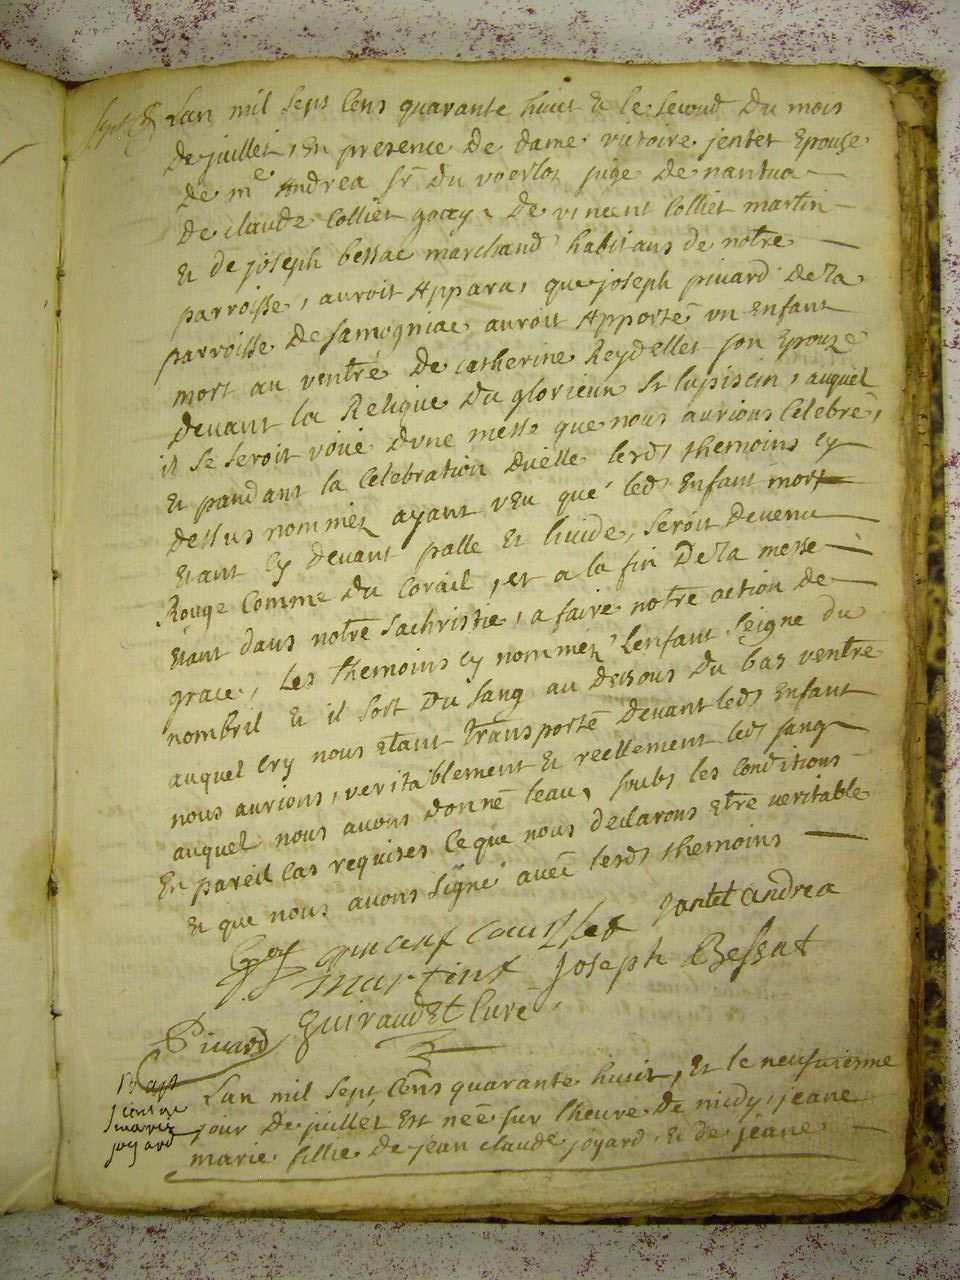 Lan mil sept Cens quarante huict & le second Du mois
De juillet, En presence De dame victoire jentet Epouse
de me Andrea sr Du voerlos juge De nantua
De claude Colliet gocey & De vincent Colliet martin
& de joseph bessac marchand habitans de notre
parroisse, auroit Apparu, que joseph pivard De la
parroisse De samogniac auroit Apporté un Enfant
mort au ventre De catherine Reydellet son Epouze
Devant la Relique Du glorieux St lupiscin, auquel
il se seroit voué dune messe que nous aurions Celebré,
Et pandant la Celebration duelle lesds themoins cy
dessus nommez ayant veu que led Enfant mort
Etant cy devant palle Et livide, seroit devenu
Rouge Comme du Corail, et a la fin De la messe
Etant dans notre sachristie, a faire notre action de
grace, Les themoins cy nommez Lenfant seigne du
nombril & il sort Du sang au dessous Du bas ventre
auquel Cry nous Etant transporté Devant leds Enfant
nous aurions, veritablement & reellement leds sang
auquel nous avons donné leau, soubs les Conditions
En pareil Cas requises Ce que nous declarons Etre veritable
& que nous avons signé avec lesds themoins
jantet andrea
martint Joseph Bessat
Guiraudet Curé
Pivard
Bapt
jeanne
marie
joyard
Lan mil sept Cens quarante huict, Et le neufvieme
jour De juillet Est née sur lheure De midy, jeane
marie fillie de jean claude joyard & de jeane